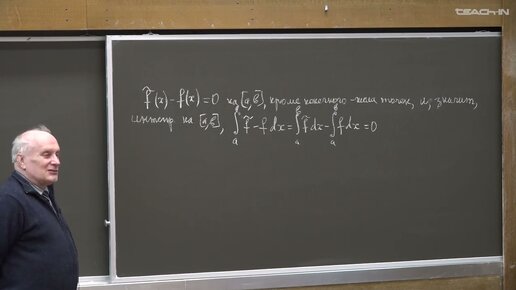 TEACH-IN
f̃(x) - f(x) = 0 на [a,b], кроме конечного числа точек, и, значит,
интегр. на [a,b], ∫ₐᵇ f̃ - f dx = ∫ₐᵇ f̃ dx - ∫ₐᵇ f dx = 0